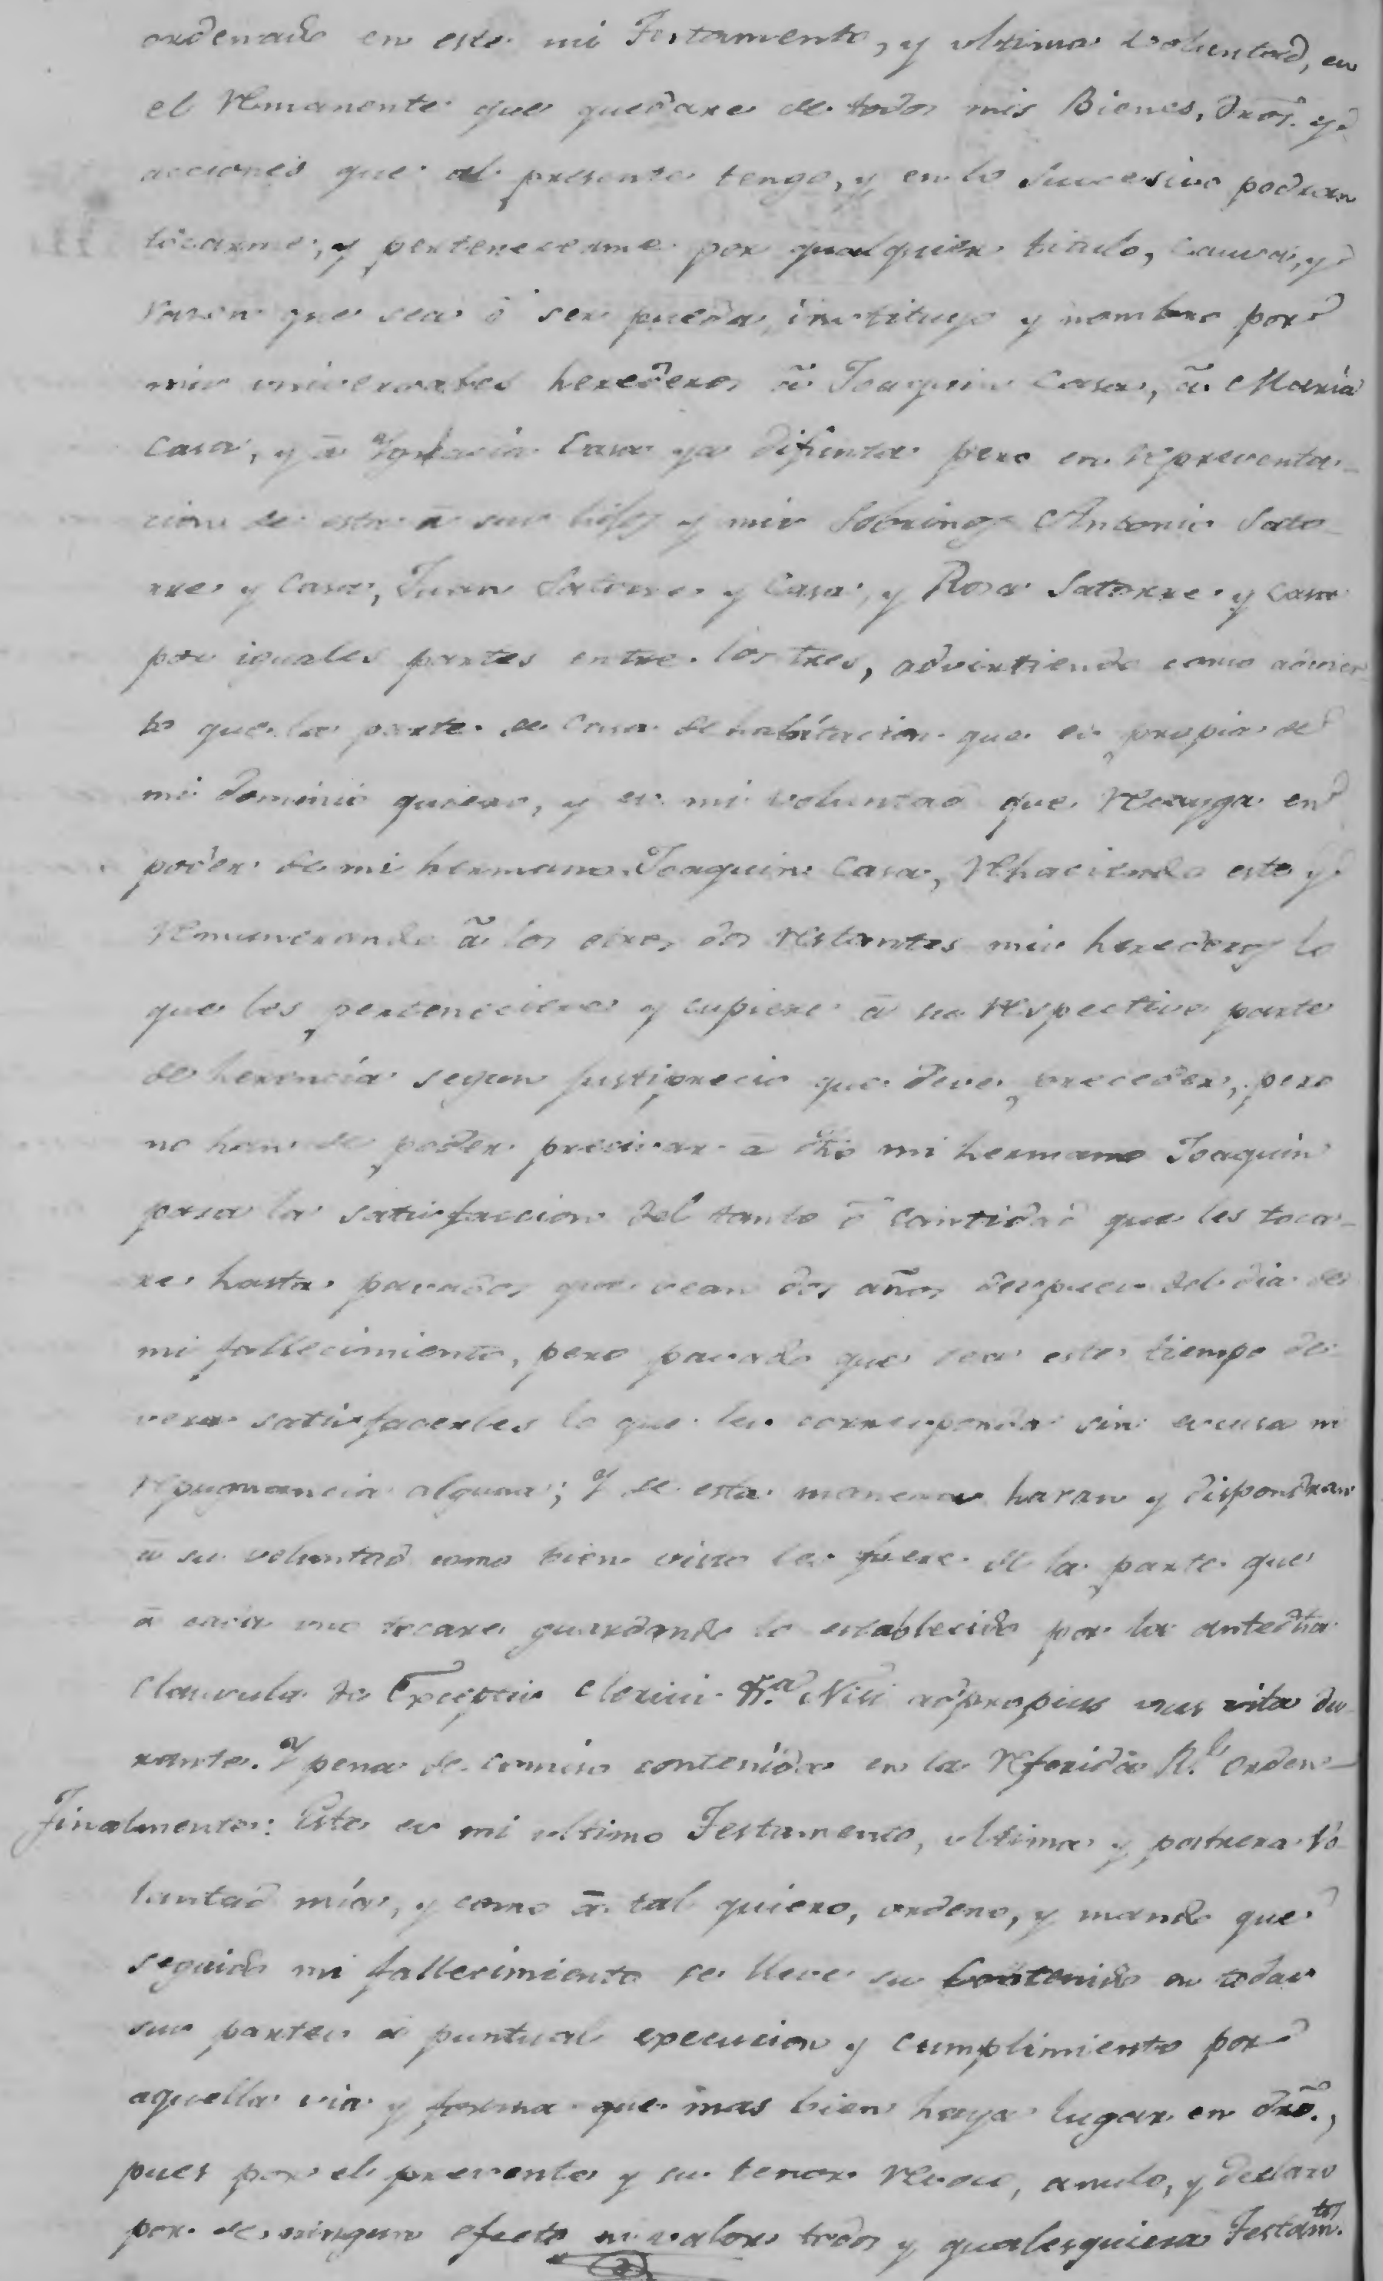 ordenado en este mi Testamento, y ultima voluntad, en
el Remanente que quedare de todos mis Bienes, dros. y
acciones que al presente tengo, y en lo sucesivo podran
tocarme, y pertenecerme por qualquier titulo, causa, y
razon que sea ó ser pueda, instituyo y nombro por
mis universales herederos á Joaquin Casa, á Maria
Casa, y á Ygnacia Casa ya difunta pero en representa-
cion de esta á sus hijos y mis sobrinos Antonio Sato-
rre y Casa, Juan Satorre y Casa, y Rosa Satorre y Casa
por iguales partes entre los tres, advirtiendo como advier-
to que la parte de Casa de habitacion que es propia de
mi dominio quiero, y es mi voluntad que Recayga en
poder de mi hermano Joaquin Casa, Rehaciendo este y
Remunerando á los otros dos Restantes mis herederos lo
que les perteneciere y cupiere á su Respectiva parte
de herencia segun justiprecio que deve preceder, pero
no han de poder precisar á dho mi hermano Joaquin
para la satisfaccion del tanto ó cantidad que les toca-
re hasta pasados que sean dos años despues del dia de
mi fallecimiento, pero pasado que sea este tiempo de-
vera satisfacerles lo que les corresponda sin escusa ni
Repugnancia alguna; Y de esta manera haran y dispondran
á su voluntad como bien visto les fuere de la parte que
á cada uno tocare guardando lo establecido por la antedha
clausula de Exceptis Clericis &.a Nisi ad propius usus vita du-
rante. Y pena de comiso contenida en la Referida R.l Orden
Finalmente: Este es mi ultimo Testamento, ultima y postrera Vo-
luntad mía, y como á tal quiero, ordeno, y mando que
seguido mi fallecimiento se lleve su Contenido en todas
sus partes á puntual execucion y cumplimiento por
aquella via y forma que mas bien haya lugar en dro.,
pues por el presente y su tenor Revoco, anulo, y declaro
por de ningun efecto ni valor todos y qualesquiera Testam.tos